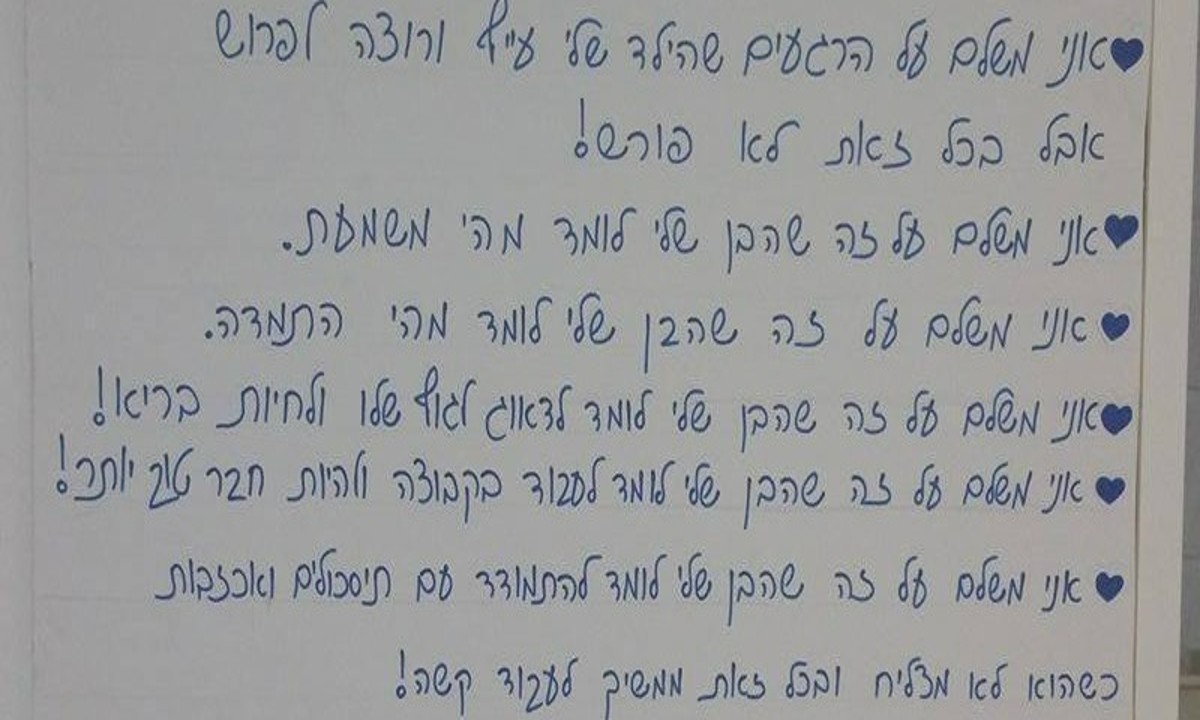 ♥אני משלם על הרגעים שהילד שלי עייף ורוצה לפרוש
אבל בכל זאת לא פורש!
♥אני משלם על זה שהבן שלי לומד מהי משמעת.
♥אני משלם על זה שהבן שלי לומד מהי התמדה.
♥אני משלם על זה שהבן שלי לומד לדאוג לגוף שלו ולחיות בריא!
♥אני משלם על זה שהבן שלי לומד לעבוד בקבוצה ולהיות חבר טוב יותר!
♥אני משלם על זה שהבן שלי לומד להתמודד עם תיסכולים ואכזבות
כשהוא לא מצליח ובכל זאת ממשיך לעבוד קשה!